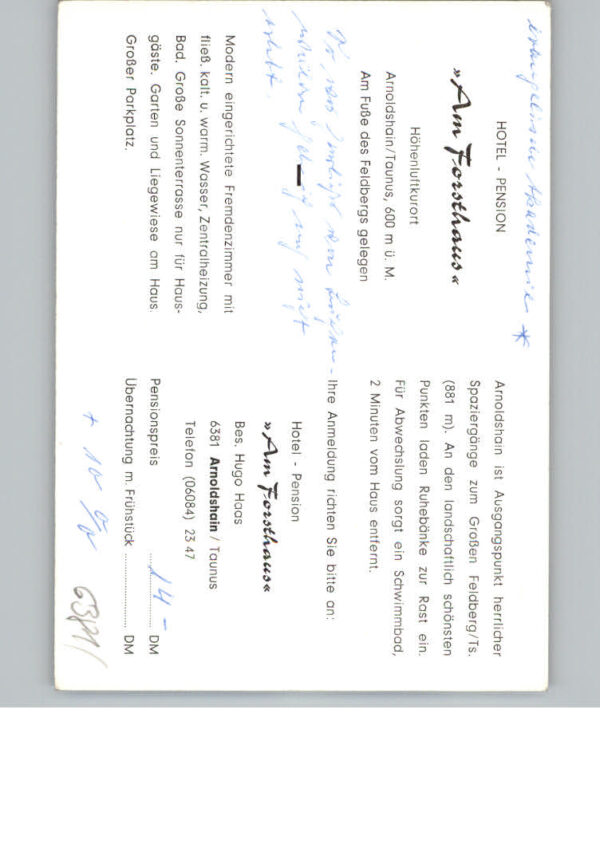 evangelische Akademie *
HOTEL - PENSION
»Am Forsthaus«
Höhenluftkurort
Arnoldshain/Taunus, 600 m ü. M.
Am Fuße des Feldbergs gelegen
Modern eingerichtete Fremdenzimmer mit
fließ. kalt. u. warm. Wasser, Zentralheizung,
Bad. Große Sonnenterrasse nur für Haus-
gäste. Garten und Liegewiese am Haus
Großer Parkplatz.
Arnoldshain ist Ausgangspunkt herrlicher
Spaziergänge zum Großen Feldberg/Ts.
(881 m). An den landschaftlich schönsten
Punkten laden Ruhebänke zur Rast ein.
Für Abwechslung sorgt ein Schwimmbad,
2 Minuten vom Haus entfernt.
Ihre Anmeldung richten Sie bitte an:
Hotel - Pension
»Am Forsthaus«
Bes. Hugo Haas
6381 Arnoldshain / Taunus
Telefon (06084) 23 47
Pensionspreis 14 - DM
Übernachtung m. Frühstück DM
+ 10 %